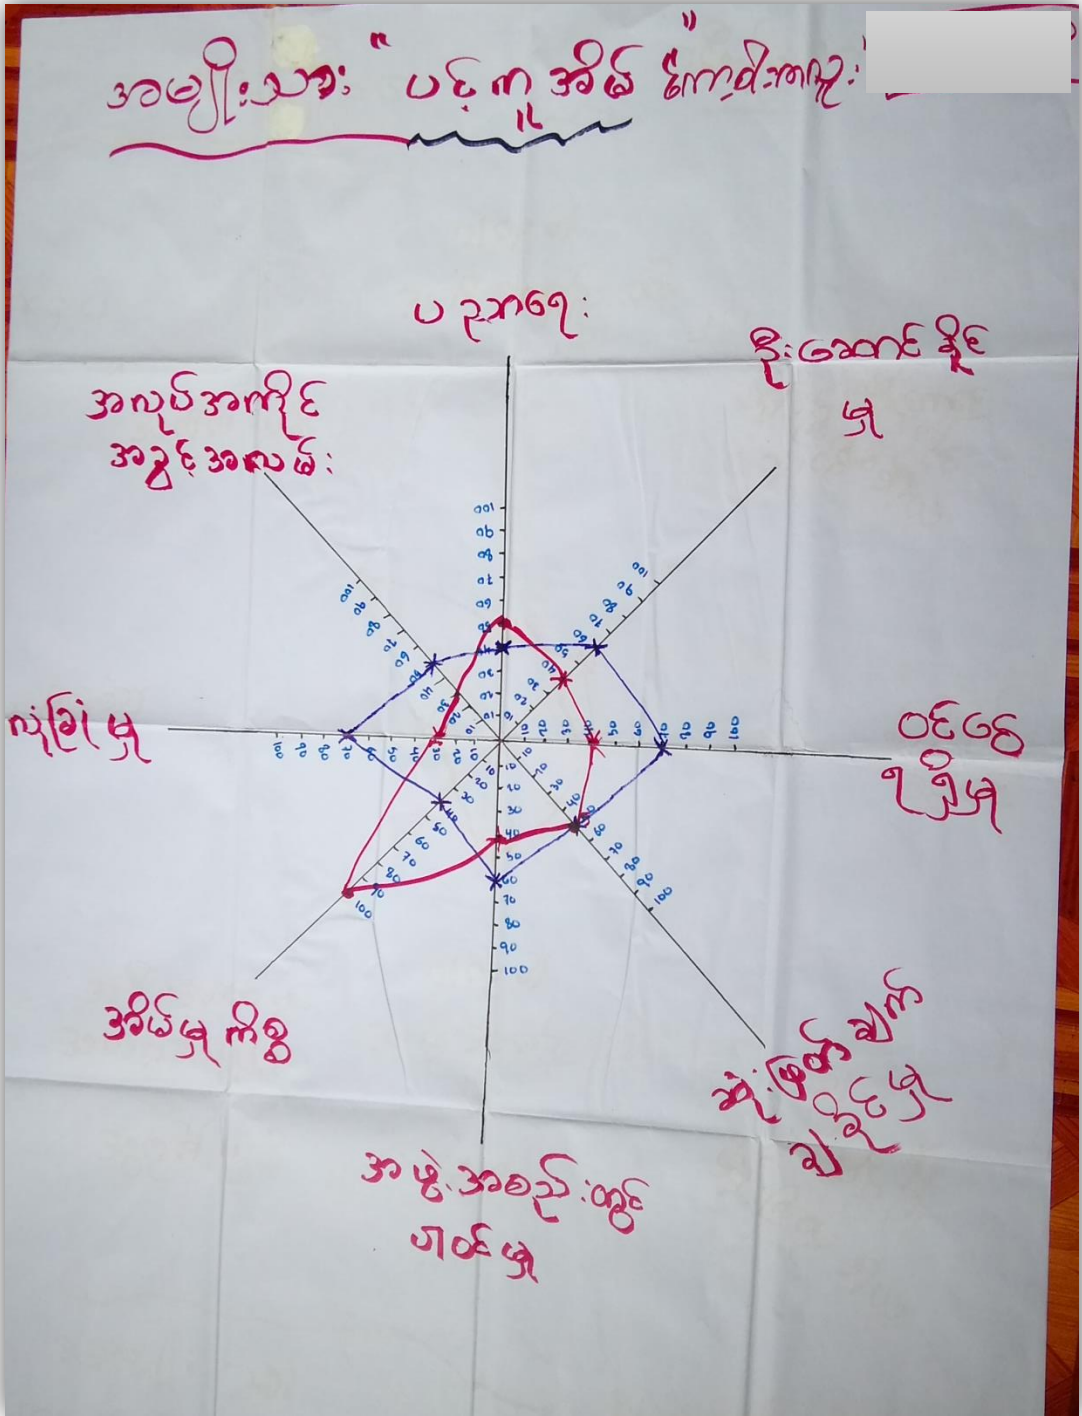 အမျိုးသား "ပင့်ကူအိမ်"
ပညာရေး
ဦးဆောင်နိုင်
မှု
အလုပ်အကိုင်
အခွင့်အလမ်း
လုံခြုံမှု
ဝင်ငွေ
ရရှိမှု
အိမ်မှုကိစ္စ
ဆုံးဖြတ်ချက်
ချနိုင်မှု
အဖွဲ့အစည်းတွင်
ပါဝင်မှု
10 20 30 40 50 60 70 80 90 100
10 20 30 40 50 60 70 80 90 100
10 20 30 40 50 60 70 80 90 100
10 20 30 40 50 60 70 80 90 100
10 20 30 40 50 60 70 80 90 100
10 20 30 40 50 60 70 80 90 100
10 20 30 40 50 60 70 80 90 100
10 20 30 40 50 60 70 80 90 100